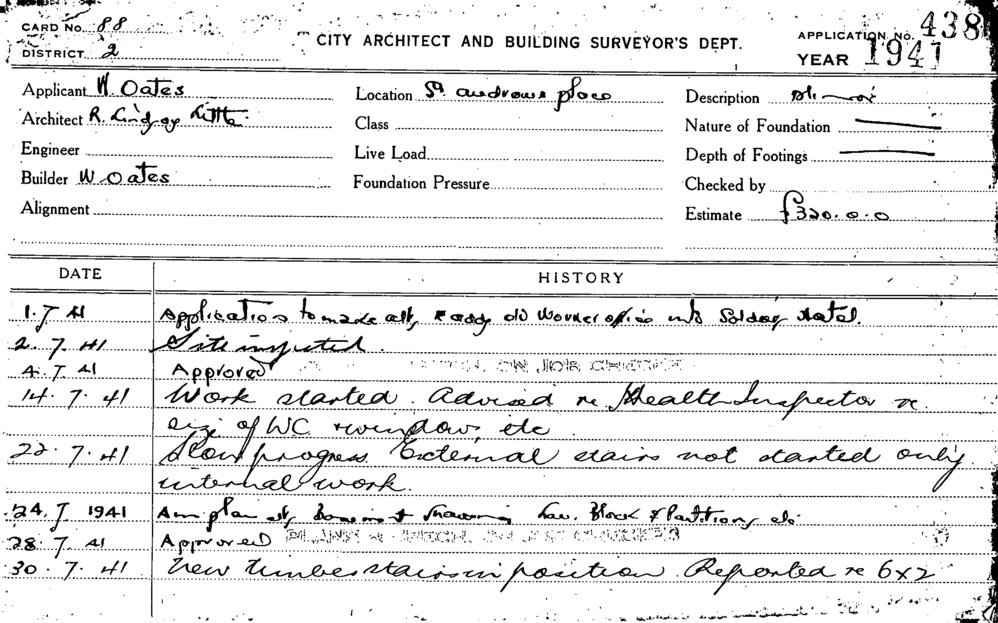 CARD No. 88
DISTRICT 2
CITY ARCHITECT AND BUILDING SURVEYOR'S DEPT.
APPLICATION No. 438
YEAR 1941
Applicant W. Oates
Architect R. Lindsay Little
Engineer
Builder W. Oates
Alignment
Location St. Andrews place
Class
Live Load
Foundation Pressure
Description
Nature of Foundation
Depth of Footings
Checked by
Estimate £320.0.0
DATE
HISTORY
1.7 41 Application to make alt, to old into Soldag Hotel.
2.7.41 Site inspected.
4.7 41 Approved ON JOB CHECKED
14.7.41 Work started. Advised re Health Inspector re
size of WC & window, etc
22.7.41 Slow progress. External stairs not started only
internal work.
24.7 1941 Am plan alt, Basement showing Lav. Block & Partitions etc
28.7 41 Approved PLANS ON JOB CHECKED
30.7.41 New timber stairs in position Reported re 6x2